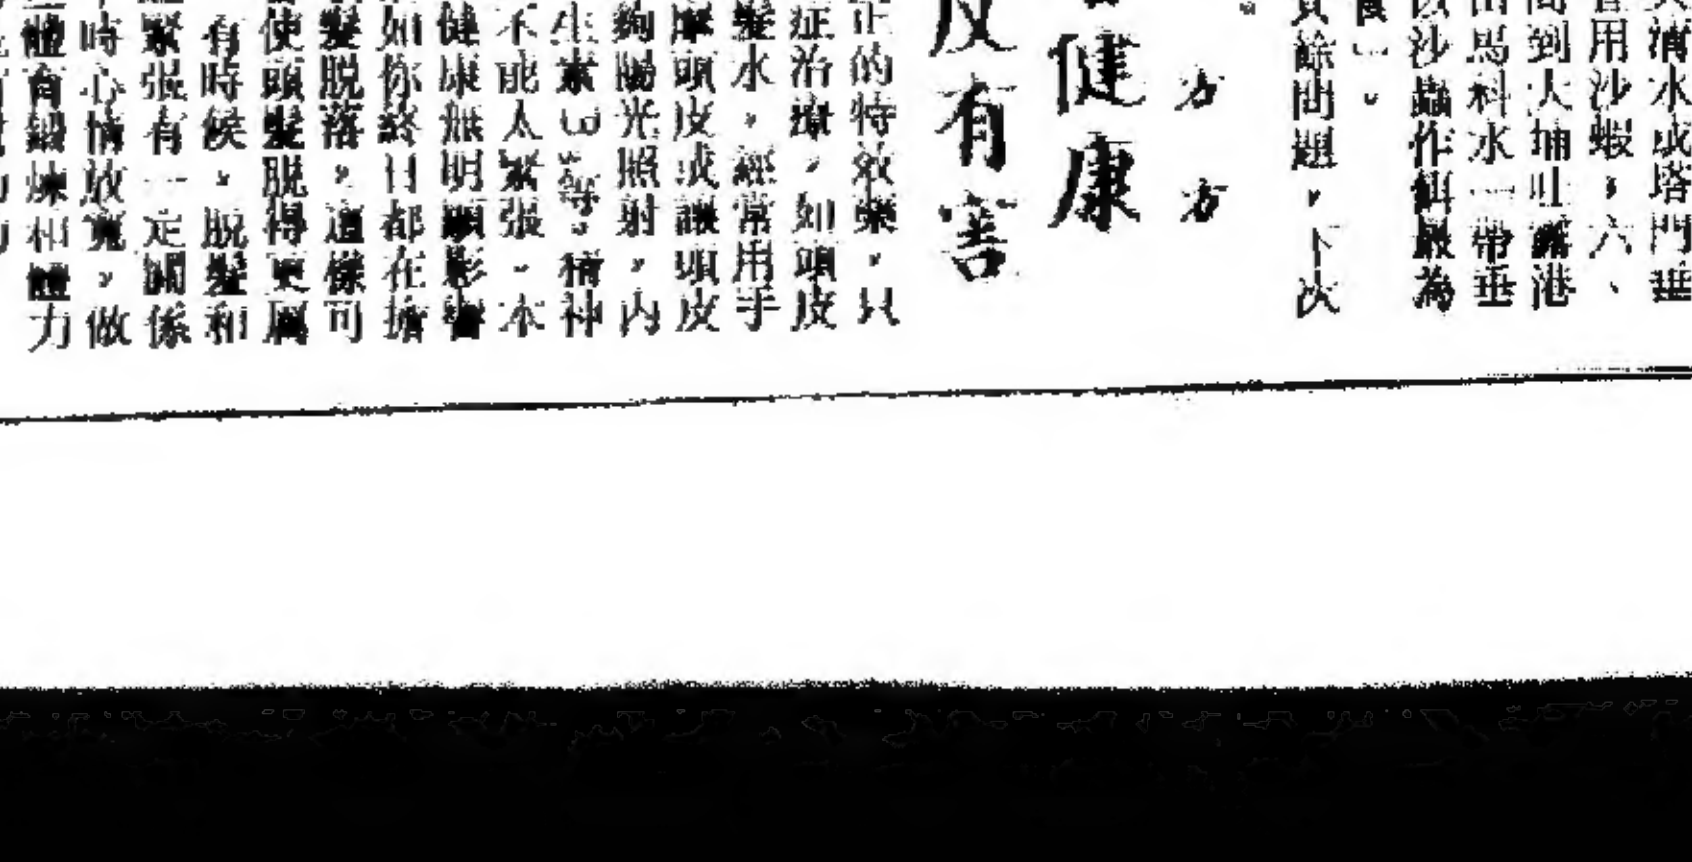 滴水或塔門垂
用沙蝦，六、
到大抽吐露港
馬料水一帶垂
沙蟲作餌最為
餘問題，下次
方方
健康
有害
正的特效藥，只
症治療，如頭皮
髮水，經常用手
摩頭皮或讓頭皮
夠陽光照射，內
生素E等。精神
不能太緊張，本
健康無明顯影響
如你終日都在擔
髮脫落，這樣可
使頭髮脫得更厲
有時候，脫髮和
緊張有一定關係
時心情放寬，做
體育鍛煉和體力